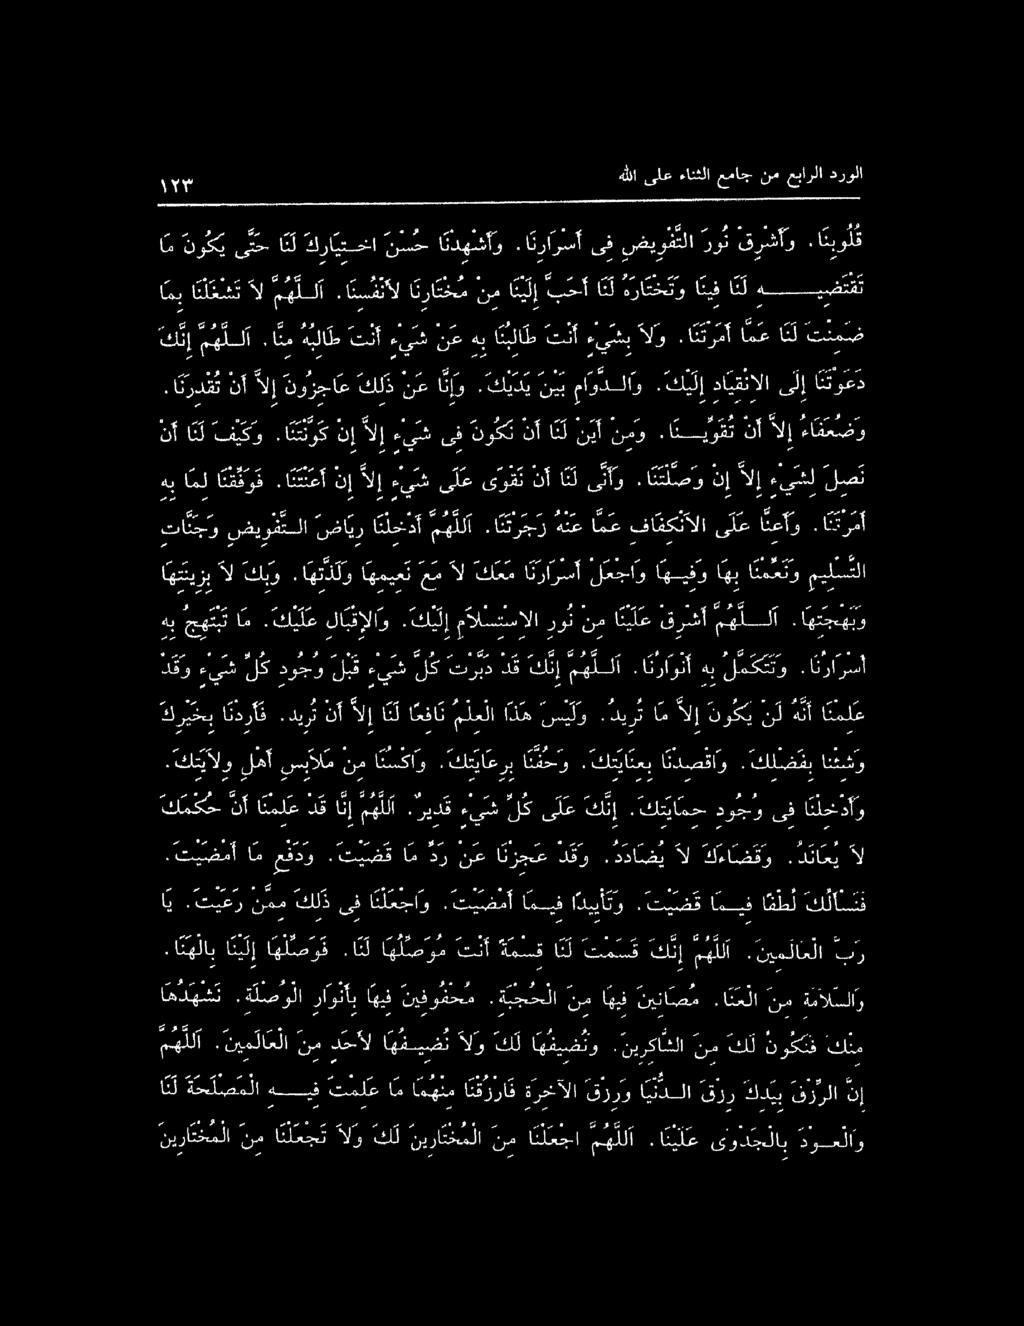 الورد الرابع من جامع الثناء على الله ١٢٣
قُلُوبِنَا. وَأَشْرِقْ نُورَ التَّفْوِيضِ فِى أَسْرَارِنَا. وَأَشْهِدْنَا حُسْنَ اخـتِيَارِكَ لَنَا حَتَّى يَكُونَ مَا
تَقْتَضِيـــهِ لَنَا فِينَا وَتَخْتَارَهُ لَنَا أَحَبَّ إِلَيْنَا مِنْ مُخْتَارِنَا لأَنْفُسِنَا. اَللَّهُمَّ لاَ تَشْغَلْنَا بِمَا
ضَمِنْتَ لَنَا عَمَّا أَمَرْتَنَا. وَلاَ بِشَيْءٍ أَنْتَ طَالِبُنَا بِهِ عَنْ شَيْءٍ أَنْتَ طَالِبُهُ مِنَّا. اَللَّهُمَّ إِنَّكَ
دَعَوْتَنَا إِلَى الاِنْقِيَادِ إِلَيْكَ. وَالـدَّوَامِ بَيْنَ يَدَيْكَ. وَإِنَّا عَنْ ذَلِكَ عَاجِزُونَ إِلاَّ أَنْ تُقْدِرَنَا.
وَضُعَفَاءُ إِلاَّ أَنْ تُقَوِّيَـــنَا. وَمِنْ أَيْنَ لَنَا أَنْ نَكُونَ فِى شَيْءٍ إِلاَّ إِنْ كَوَّنْتَنَا. وَكَيْفَ لَنَا أَنْ
نَصِلَ لِشَيْءٍ إِلاَّ إِنْ وَصَّلْتَنَا. وَأَنَّى لَنَا أَنْ نَقْوَى عَلَى شَيْءٍ إِلاَّ إِنْ أَعَنْتَنَا. فَوَفِّقْنَا لِمَا بِهِ
أَمَرْتَنَا. وَأَعِنَّا عَلَى الاَنْكِفَافِ عَمَّا عَنْهُ زَجَرْتَنَا. اَللَّهُمَّ أَدْخِلْنَا رِيَاضَ الـتَّفْوِيضِ وَجَنَّاتِ
التَّسْلِيمِ وَنَعِّمْنَا بِهَا وَفِيـهَا وَاجْعَلْ أَسْرَارَنَا مَعَكَ لاَ مَعَ نَعِيمِهَا وَلَذَّتِهَا. وَبِكَ لاَ بِزِينَتِهَا
وَبَهْجَتِهَا. اَلــلَّهُمَّ أَشْرِقْ عَلَيْنَا مِنْ نُورِ الاِسْتِسْلاَمِ إِلَيْكَ. وَالإِقْبَالِ عَلَيْكَ. مَا تَبْتَهِجُ بِهِ
أَسْرَارُنَا. وَتَتَكَمَّلُ بِهِ أَنْوَارُنَا. اَللَّهُمَّ إِنَّكَ قَدْ دَبَّرْتَ كُلَّ شَيْءٍ قَبْلَ وُجُودِ كُلِّ شَيْءٍ وَقَدْ
عَلِمْنَا أَنَّهُ لَنْ يَكُونَ إِلاَّ مَا تُرِيدُ. وَلَيْسَ هَذَا الْعِلْمُ نَافِعًا لَنَا إِلاَّ أَنْ تُرِيدَ. فَأَرِدْنَا بِخَيْرِكَ
وَشِئْنا بِفَضْلِكَ. وَاقْصِدْنَا بِعِنَايَتِكَ. وَحُفَّنَا بِرِعَايَتِكَ. وَاكْسُنَا مِنْ مَلاَبِسِ أَهْلِ وِلاَيَتِكَ.
وَأَدْخِلْنَا فِى وُجُودِ حِمَايَتِكَ. إِنَّكَ عَلَى كُلِّ شَيْءٍ قَدِيرٌ. اَللَّهُمَّ إِنَّا قَدْ عَلِمْنَا أَنَّ حُكْمَكَ
لاَ يُعَانَدُ. وَقَضَاءَكَ لاَ يُضَادَدُ. وَقَدْ عَجِزْنَا عَنْ رَدِّ مَا قَضَيْتَ. وَدَفْعِ مَا أَمْضَيْتَ.
فَنَسْأَلُكَ لُطْفًا فِيـمَا قَضَيْتَ. وَتَأْيِيدًا فِيـمَا أَمْضَيْتَ. وَاجْعَلْنَا فِى ذَلِكَ مِمَّنْ رَعَيْتَ. يَا
رَبَّ الْعَالَمِينَ. اَللَّهُمَّ إِنَّكَ قَسَمْتَ لَنَا قِسْمَةً أَنْتَ مُوَصِّلُهَا لَنَا. فَوَصِّلْهَا إِلَيْنَا بِالْهَنَا.
وَالسَّلاَمَةِ مِنَ الْعَنَا. مُصَانِينَ فِيهَا مِنَ الْحُجْبَةِ. مُحْفُوفِينَ فِيهَا بِأَنْوَارِ الْوُصْلَةِ. نَشْهَدُهَا
مِنْكَ فَنَكُونُ لَكَ مِنَ الشَّاكِرِينَ. وَنُضِيفُهَا لَكَ وَلاَ نُضِيـفُهَا لأَحَدٍ مِنَ الْعَالَمِينَ. اَللَّهُمَّ
إِنَّ الرِّزْقَ بِيَدِكَ رِزْقَ الـدُّنْيَا وَرِزْقَ الآخِرَةِ فَارْزُقْنَا مِنْهُمَا مَا عَلِمْتَ فِيـــهِ الْمَصْلَحَةَ لَنَا
وَالْعَـوْدَ بِالْجَدْوَى عَلَيْنَا. اَللَّهُمَّ اجْعَلْنَا مِنَ الْمُخْتَارِينَ لَكَ وَلاَ تَجْعَلْنَا مِنَ الْمُخْتَارِينَ